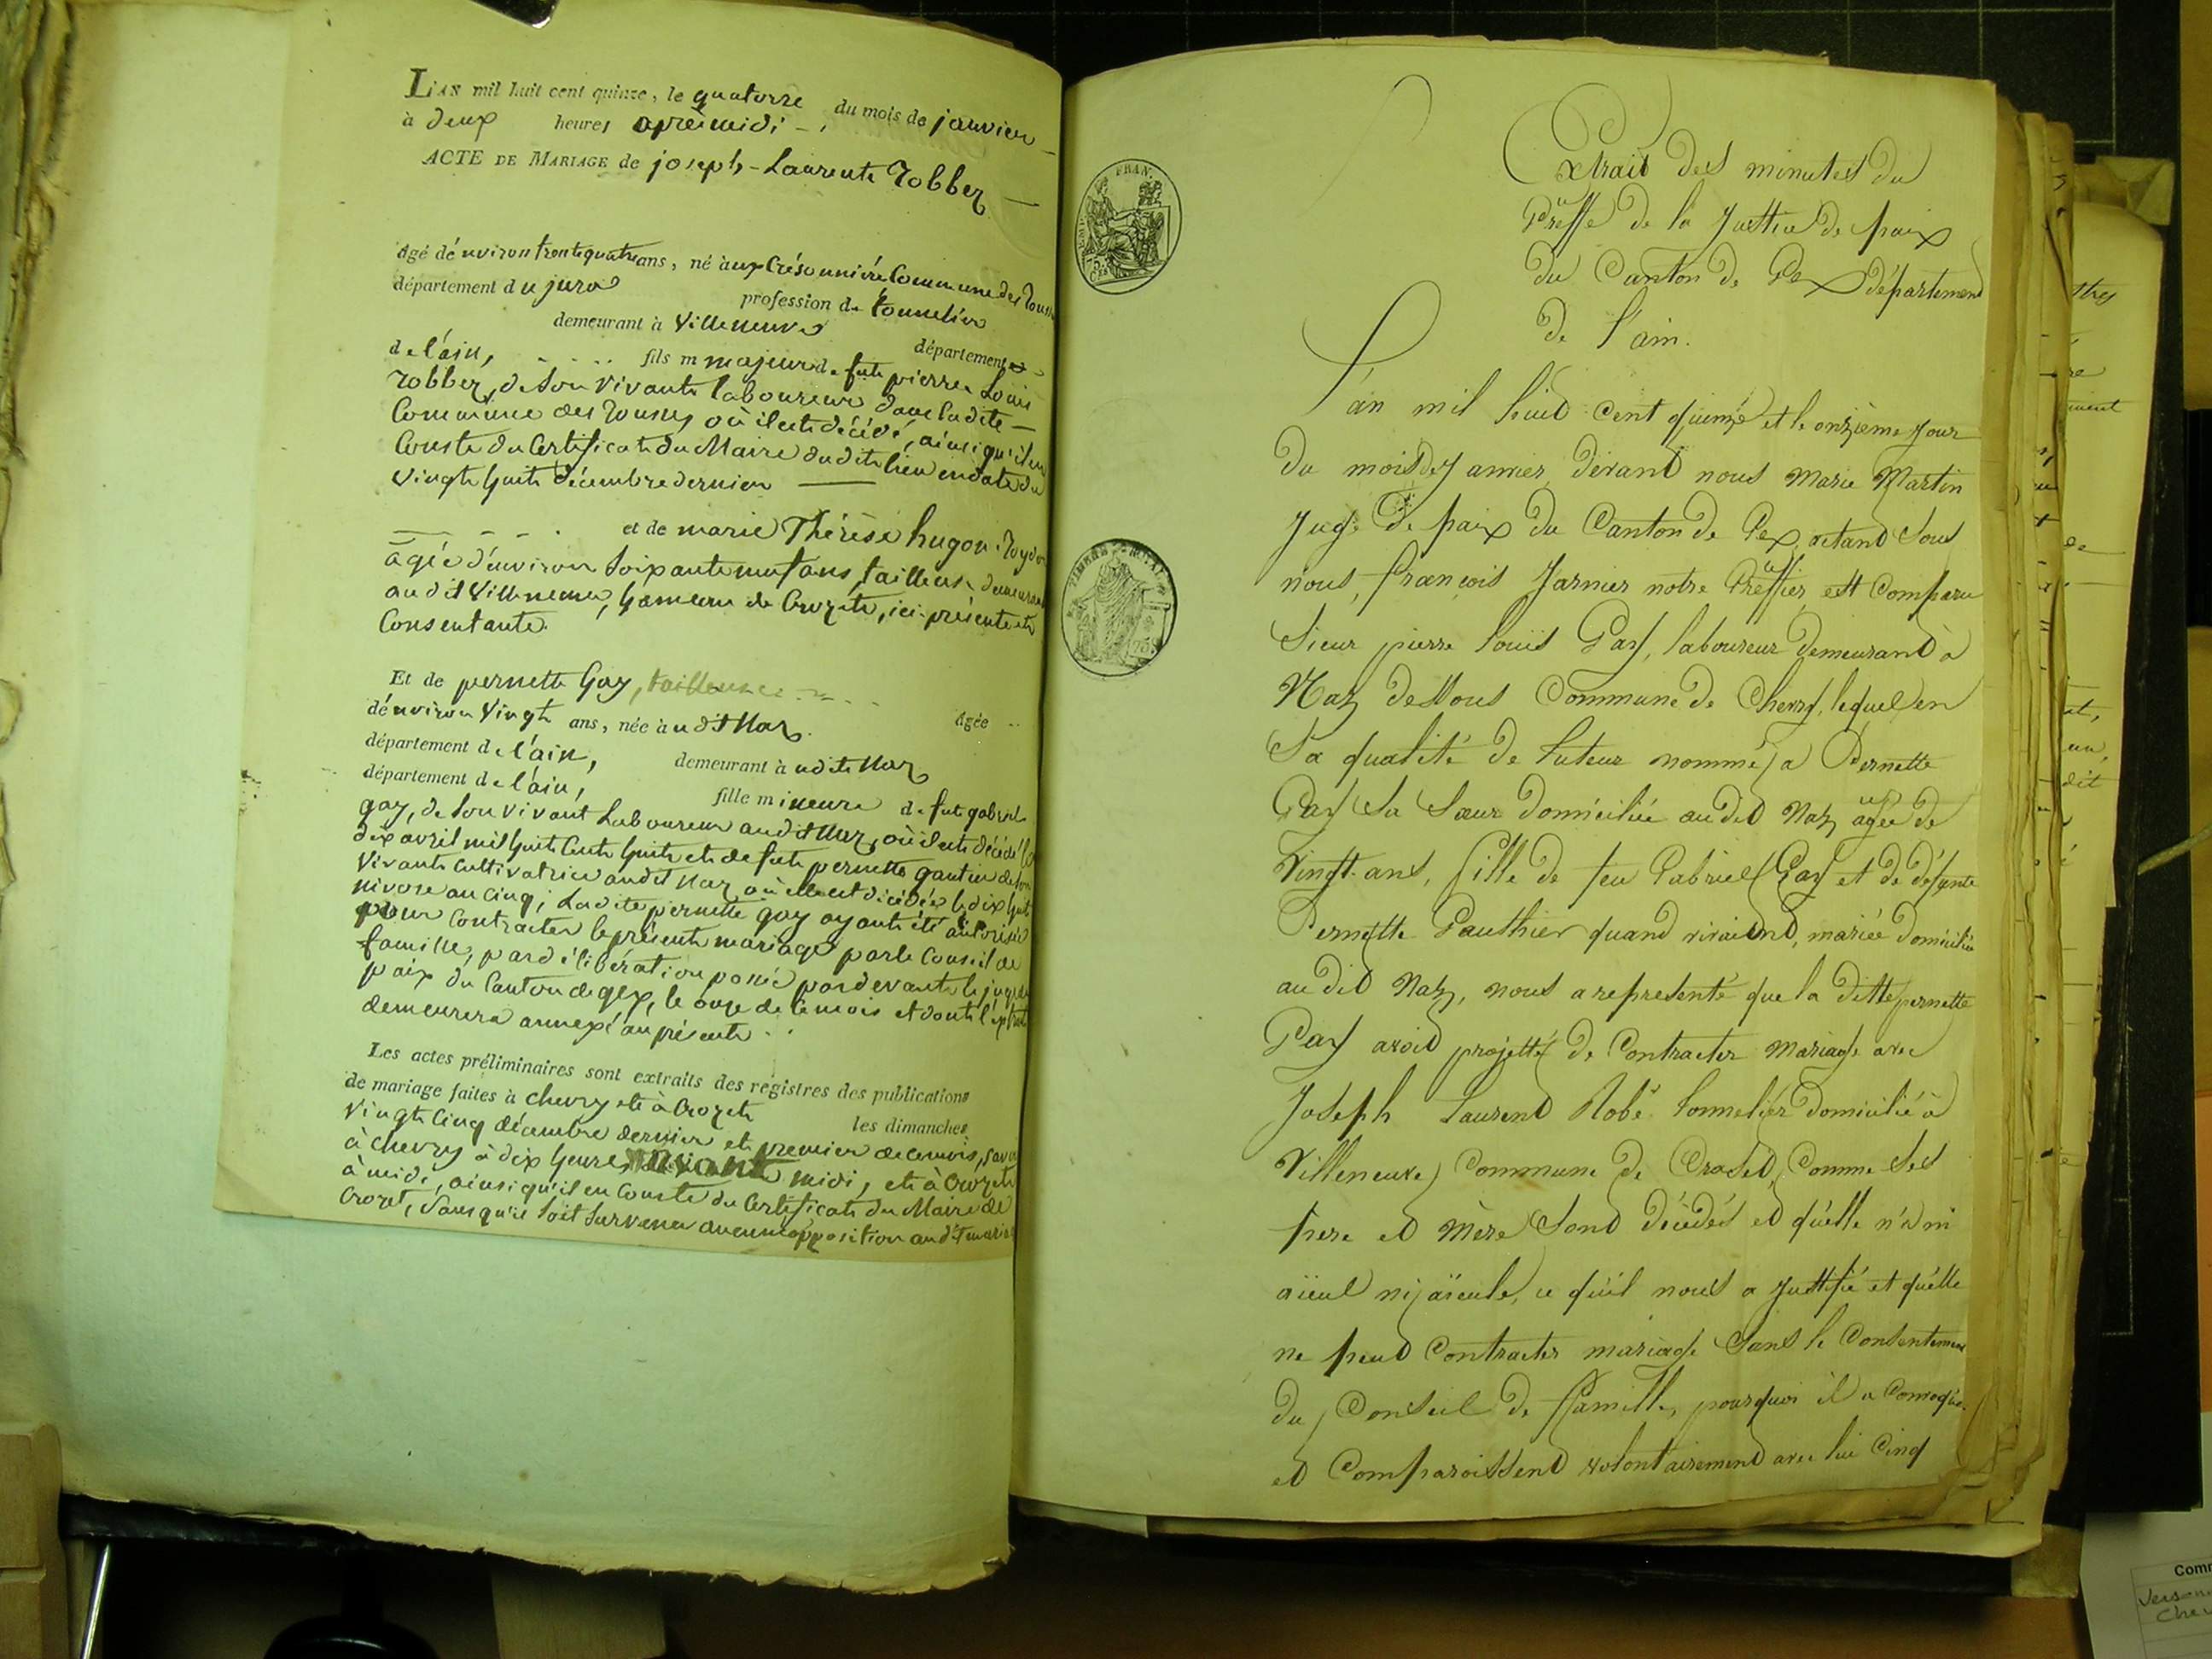 L'AN mil huit cent quinze, le quatorze du mois de janvier
à deux heures après midi
ACTE DE MARIAGE de joseph-Laurent Robbez
Agé d'environ trente quatre ans, né aux Crésonnière Commune des Rousses
département du jura profession de tonnelier
demeurant à Villeneuve département
de l'ain, fils m majeur de fut pierre Louis
Robbez, de son vivant laboureur dans ladite
Commune des Rousses où il est décédé, ainsi qu'il en
Conste du Certificat du Maire dudit lieu en date du
vingt huit décembre dernier
et de marie Thérèse hugon
agée d'environ soixante neuf ans, tailleuse demeurant
audit Villeneuve, hameau de Crozet, ici présente et
Consentante.
Et de pernette Gay, tailleuse Agée
d'environ vingt ans, née audit Naz
département de l'ain, demeurant audit Naz
département de l'ain, fille mineure de fut gabriel
gay, de son vivant Laboureur audit Naz, où il est décédé le
dix avril mil huit cent huit et de fut pernette gautier de son
vivant Cultivatrice audit Naz où elle est décédée le dix huit
nivose an cinq; Ladite pernette gay ayant été autorisée
pour Contracter le présent mariage par le Conseil de
famille, par délibération passé pardevant le juge de
paix du Canton de gex, le onze de ce mois et dont l'extrait
demeurera annexé au présent
Les actes préliminaires sont extraits des registres des publications
de mariage faites à chevry et à Crozet les dimanches
vingt Cinq décembre dernier et premier de ce mois, savoir
à chevry à dix heures avant midi, et à Crozet
à midi, ainsi qu'il en Conste du Certificat du Maire de
Crozet, sans qu'il soit survenu aucune opposition audit mariage
FRAN.
TIMBRE ROYAL
Extrait des minutes du
Greffe de la Justice de paix
du Canton de Gex département
de l'ain.
L'an mil huit cent quinze et le onzième jour
du mois de Janvier, devant nous Marie Martin
Juge de paix du Canton de Gex, etant sous
nous, françois Jarnier notre Greffier, est Comparu
sieur pierre louis Gay, laboureur demeurant à
Naz dessous Commune de Chevry, lequel en
sa qualité de tuteur nommé a Pernette
Gay sa sœur domiciliée audit Naz agée de
vingt ans, fille de feu Gabriel Gay et de défunte
Pernette Gauthier quand vivaient, mariée domiciliée
audit Naz, nous a representé que la ditte pernette
Gay avoit projetté de Contracter mariage avec
Joseph Laurent Robé tonnelier domicilié à
Villeneuve Commune de Croset, Comme ses
pere et Mère sont décédés et qu'elle n'a ni
aïeul ni aïeule, ce qu'il nous a justifié et qu'elle
ne peut Contracter mariage sans le Consentement
du Conseil de famille, pourquoi il a Convoqué
et Comparoissent volontairement avec lui Cinq